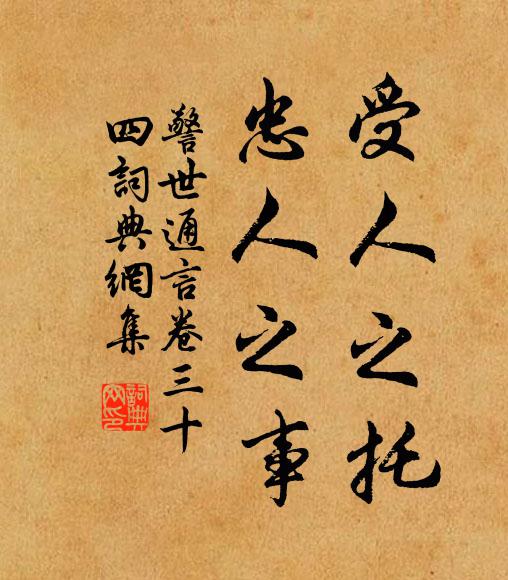 受人之托
忠人之事
警世通言卷三十
四詞典網集
詞典
网印